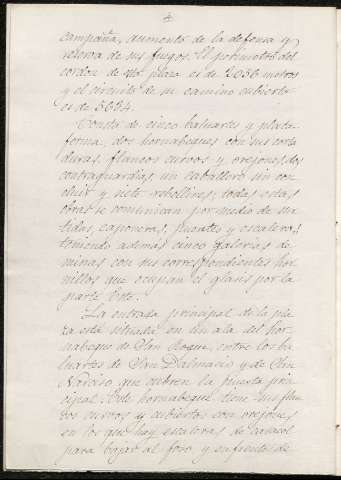 4
campaña, aumento de la defensa y
reserva de sus fuegos. El perimetro del
cordon de esta plaza es de 2.056 metros
y el circuito de su camino cubierto
es de 3664.
Consta de cinco baluartes y plata
forma, dos hornabeques con sus corta
duras, flancos curvos y orejones, dos
contraguardias, un caballero sin con
cluir y siete rebellines; todas estas
obras se comunican por medio de sur
tidas, caponeras, puentes y escaleras,
teniendo además cinco galerias de
minas con sus correspondientes hor
nillos que ocupan el glasis por la
parte Este.
La entrada principal de la pla
za está situada en un ala del hor
nabeque de San Roque, entre los ba
luartes de San Dalmacio y de San
Narciso que cubren la puerta prin
cipal. Este hornabeque tiene sus flan
cos curvos y cubiertos con orejones,
en los que hay escaleras de caracol
para bajar al foso y enfrente de